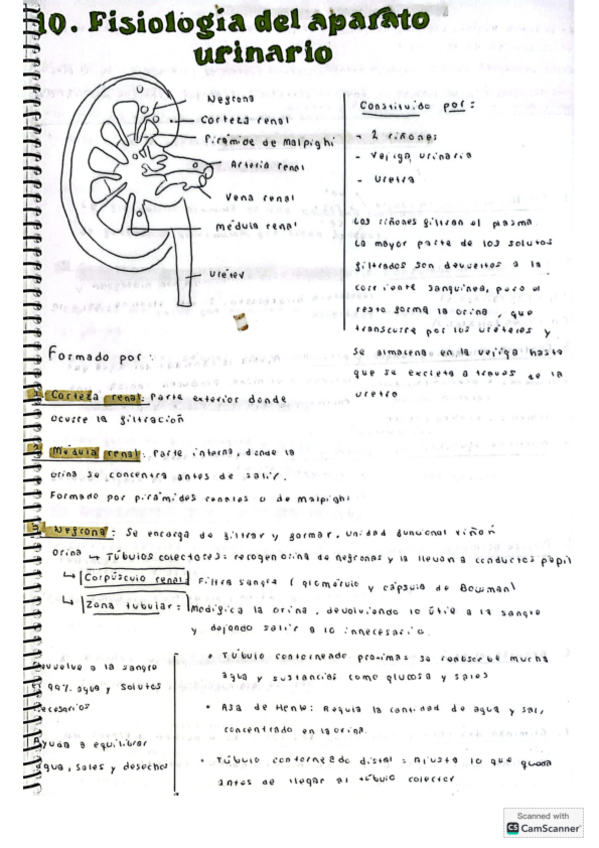 10. Fisiología del aparato
urinario
Negrona
Corteza renal
Pirámide de Malpighi
Arteria renal
Vena renal
médula renal
uréter
Constituido por:
- 2 riñones
- Vejiga urinaria
- Uretra
Los riñones filtran el plasma.
La mayor parte de los solutos
filtrados son devueltos a la
corriente sanguínea, pero el
resto forma la orina, que
transcurre por los uréteres y
se almacena en la vejiga hasta
que se excreta a través de la
uretra
Formado por:
1. Corteza renal: Parte exterior donde
ocurre la filtración
2. Médula renal: Parte interna, donde la
orina se concentra antes de salir.
Formado por pirámides renales o de malpighi
3. Negrona: Se encarga de filtrar y formar, unidad funcional riñón
orina ↳ Túbulos colectores: recogen orina de negronas y la llevan a conductos papil
↳ Corpúsculo renal: Filtra sangre (glomérulo y cápsula de Bowman)
↳ Zona tubular: Modifica la orina, devolviendo lo útil a la sangre
y dejando salir a lo innecesario.
vuelve a la sangre
99% agua y solutos
necesarios
Ayuda a equilibrar
agua, sales y desechos
• Túbulo contorneado proximas: se reabsorbe mucha
agua y sustancias como glucosa y sales
• Asa de Henle: Regula la cantidad de agua y sal,
concentrado en la orina.
• Túbulo contorneado distal: Ajusta lo que queda
antes de llegar al túbulo colector
Scanned with
CS CamScanner